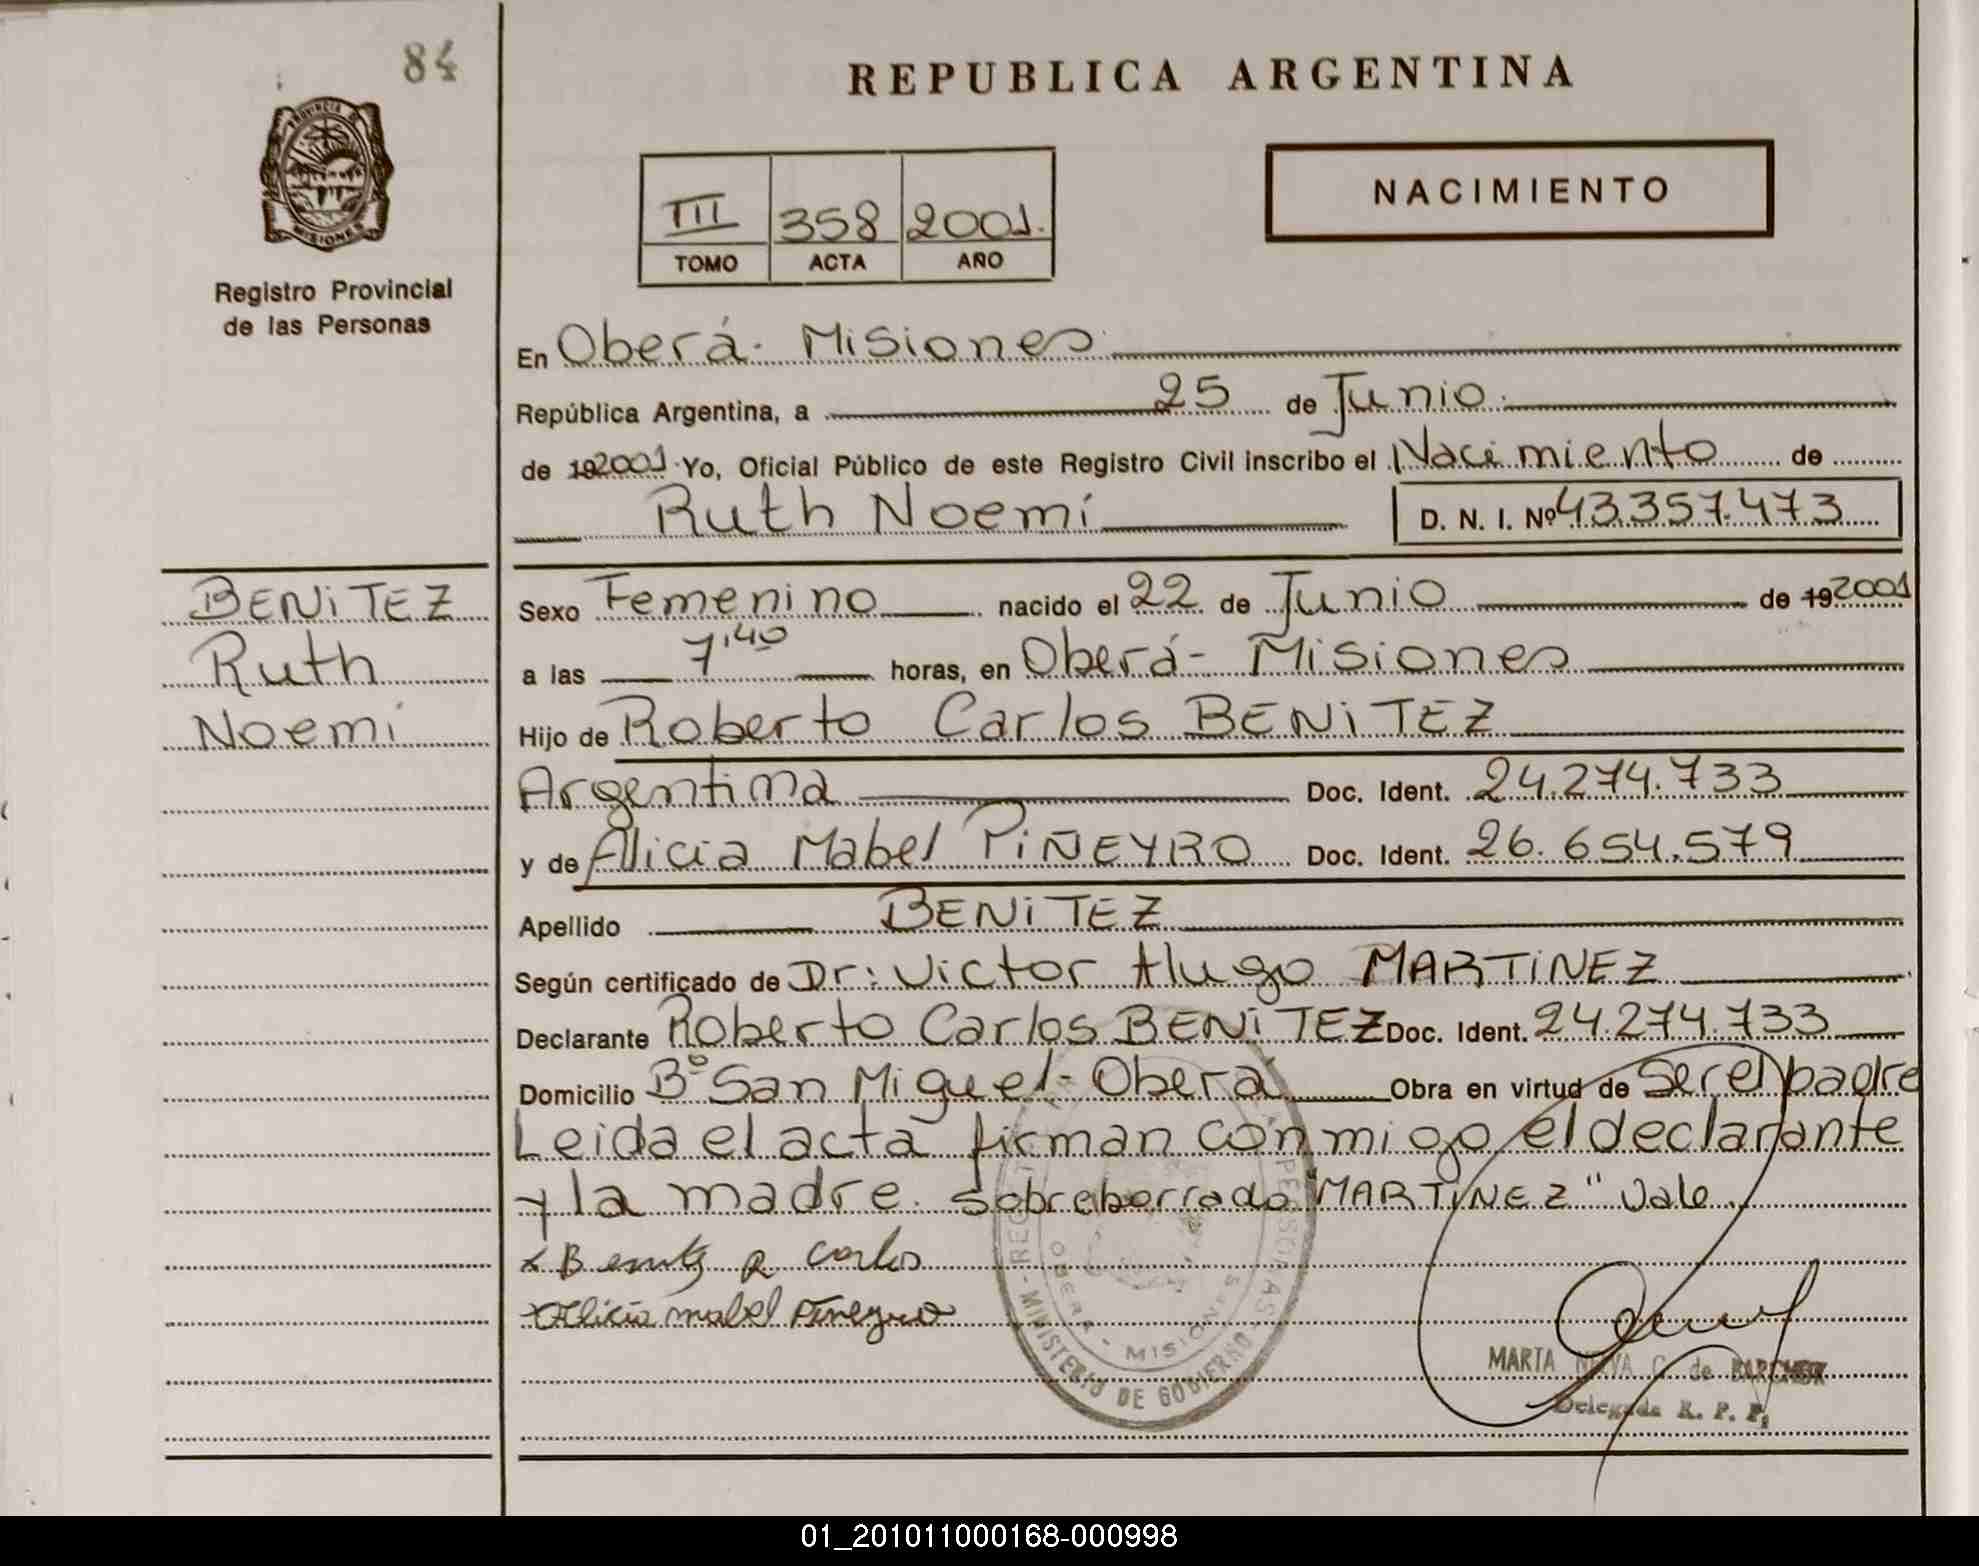 84
REPUBLICA ARGENTINA
PROVINCIA DE
MISIONES
Registro Provincial
de las Personas
III 358 2001.
TOMO ACTA AÑO
NACIMIENTO
En Oberá - Misiones
República Argentina, a 25 de Junio
de 192001 Yo, Oficial Público de este Registro Civil inscribo el Nacimiento de
Ruth Noemí D. N. I. Nº 43.357.473
BENiTEZ
Ruth
Noemí
Sexo Femenino nacido el 22 de Junio de 192001
a las 7,40 horas, en Oberá - Misiones
Hijo de Roberto Carlos BENiTEZ
Argentina Doc. Ident. 24.274.733
y de Alicia Mabel PiÑEYRO Doc. Ident. 26.654.579
Apellido BENiTEZ
Según certificado de Dr: Victor Hugo MARTiNEZ
Declarante Roberto Carlos BENiTEZ Doc. Ident. 24.274.733
Domicilio Bº San Miguel - Oberá Obra en virtud de ser el padre
Leida el acta firman conmigo el declarante
y la madre. Sobreborrado "MARTiNEZ" Vale.
x Benitz R Carlos
x Alicia mabel Pineyro
MINISTERIO DE GOBIERNO
OBERA - MISIONES
MARTA C. de
Delegada R. P. P.
01_201011000168-000998